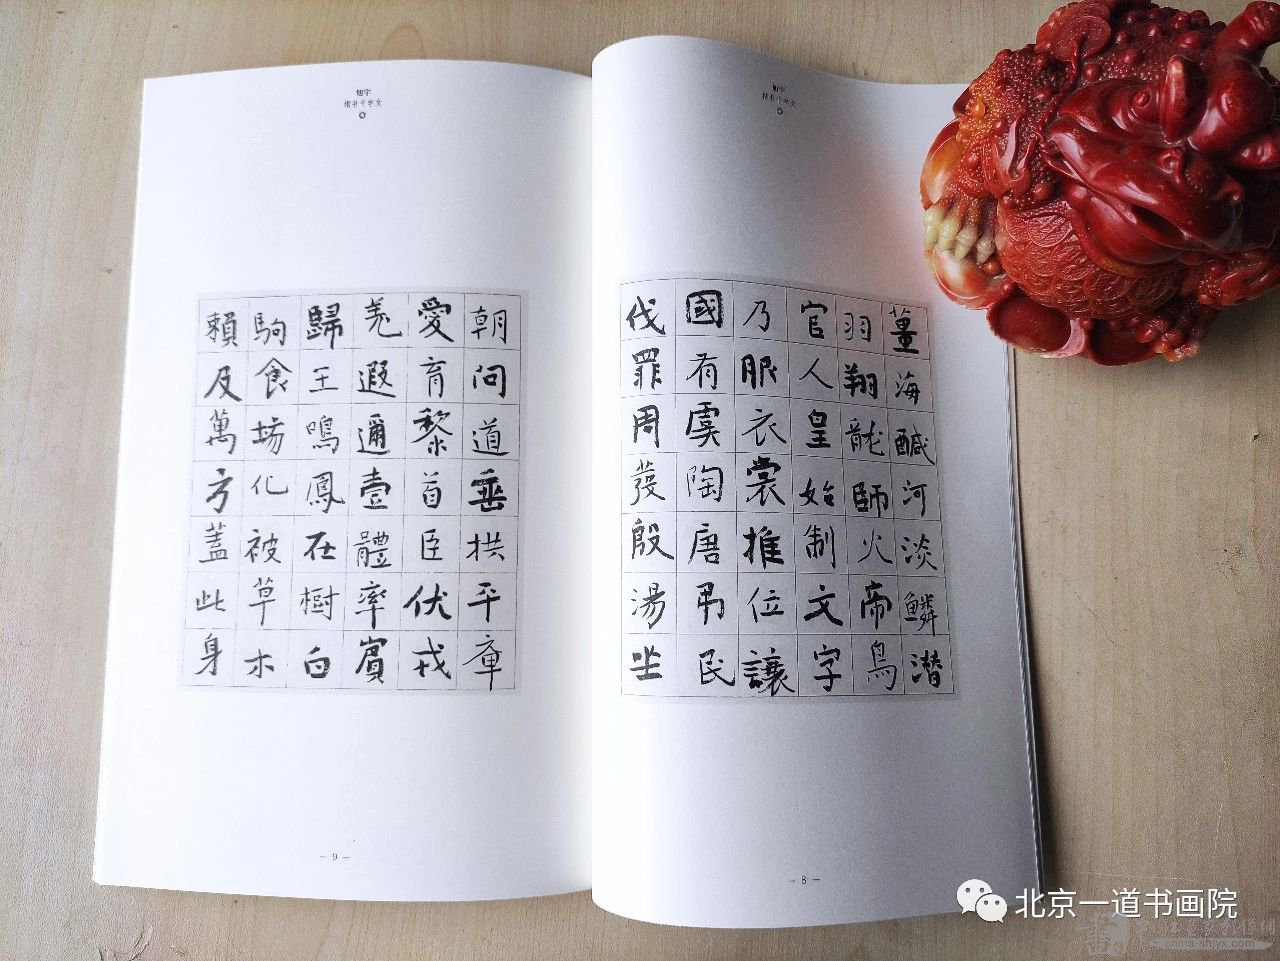 旭宇
楷书千字文
薑海醎河淡鱗潜
羽翔龍師火帝鳥
官人皇始制文字
乃服衣裳推位讓
國有虞陶唐吊民
伐罪周發殷湯坐
— 8 —
旭宇
楷书千字文
朝問道垂拱平章
愛育黎首臣伏戎
羌遐邇壹體率賓
歸王鳴鳳在樹白
駒食場化被草木
賴及萬方蓋此身
— 9 —
北京一道书画院